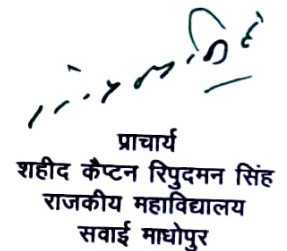 प्राचार्य
शहीद कैप्टन रिपुदमन सिंह
राजकीय महाविद्यालय
सवाई माधोपुर